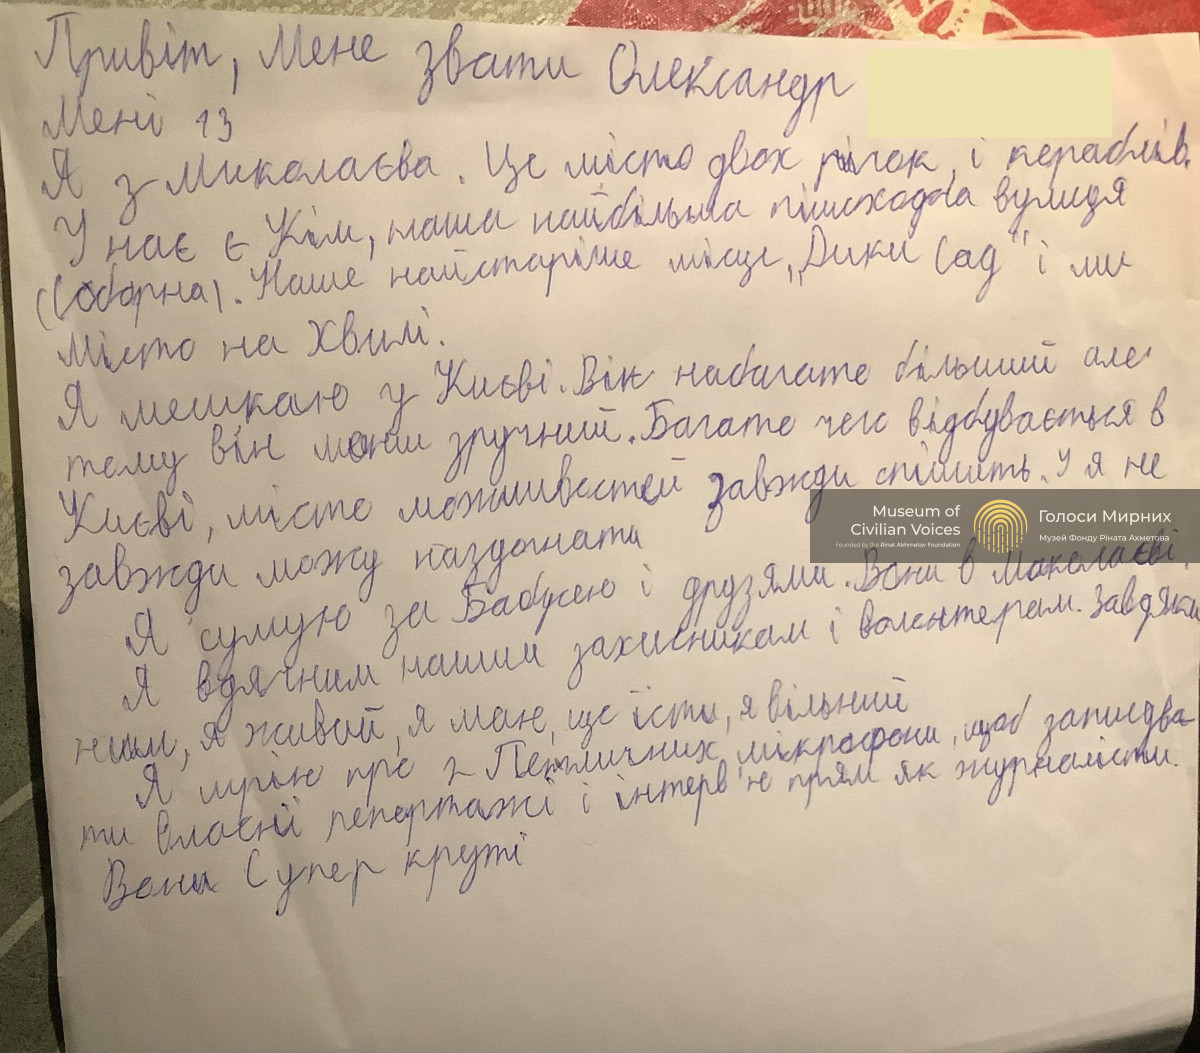 Привіт, Мене звати Олександр
Мені 13
Я з Миколаєва. Це місто двох річок, і кораблів.
У нас є Кім, наша найбільша пішоходна вулиця
(Соборна). Наше найстаріше місце „Дики Сад" і ми
Місто на Хвилі.
Я мешкаю у Києві. Він набагато більший але
тому він менш зручний. Багато чего відбувається в
Києві, місто можливостей завжди спішить. У я не
завжди можу наздогнати
Я сумую за Бабусею і друзями. Вони в Миколаєві.
Я вдячним нашим захисникам і волонтерам. Завдяки
ним, я живой, я маю, що їсти, я вільний
Я мрію про 2 Петличних мікрофони, щоб записува
ти власнії репортажі і інтерв'ю прям як журналісти.
Вони Супер круті
Museum of
Civilian Voices
Founded by the Rinat Akhmetov Foundation
Голоси Мирних
Музей Фонду Ріната Ахметова